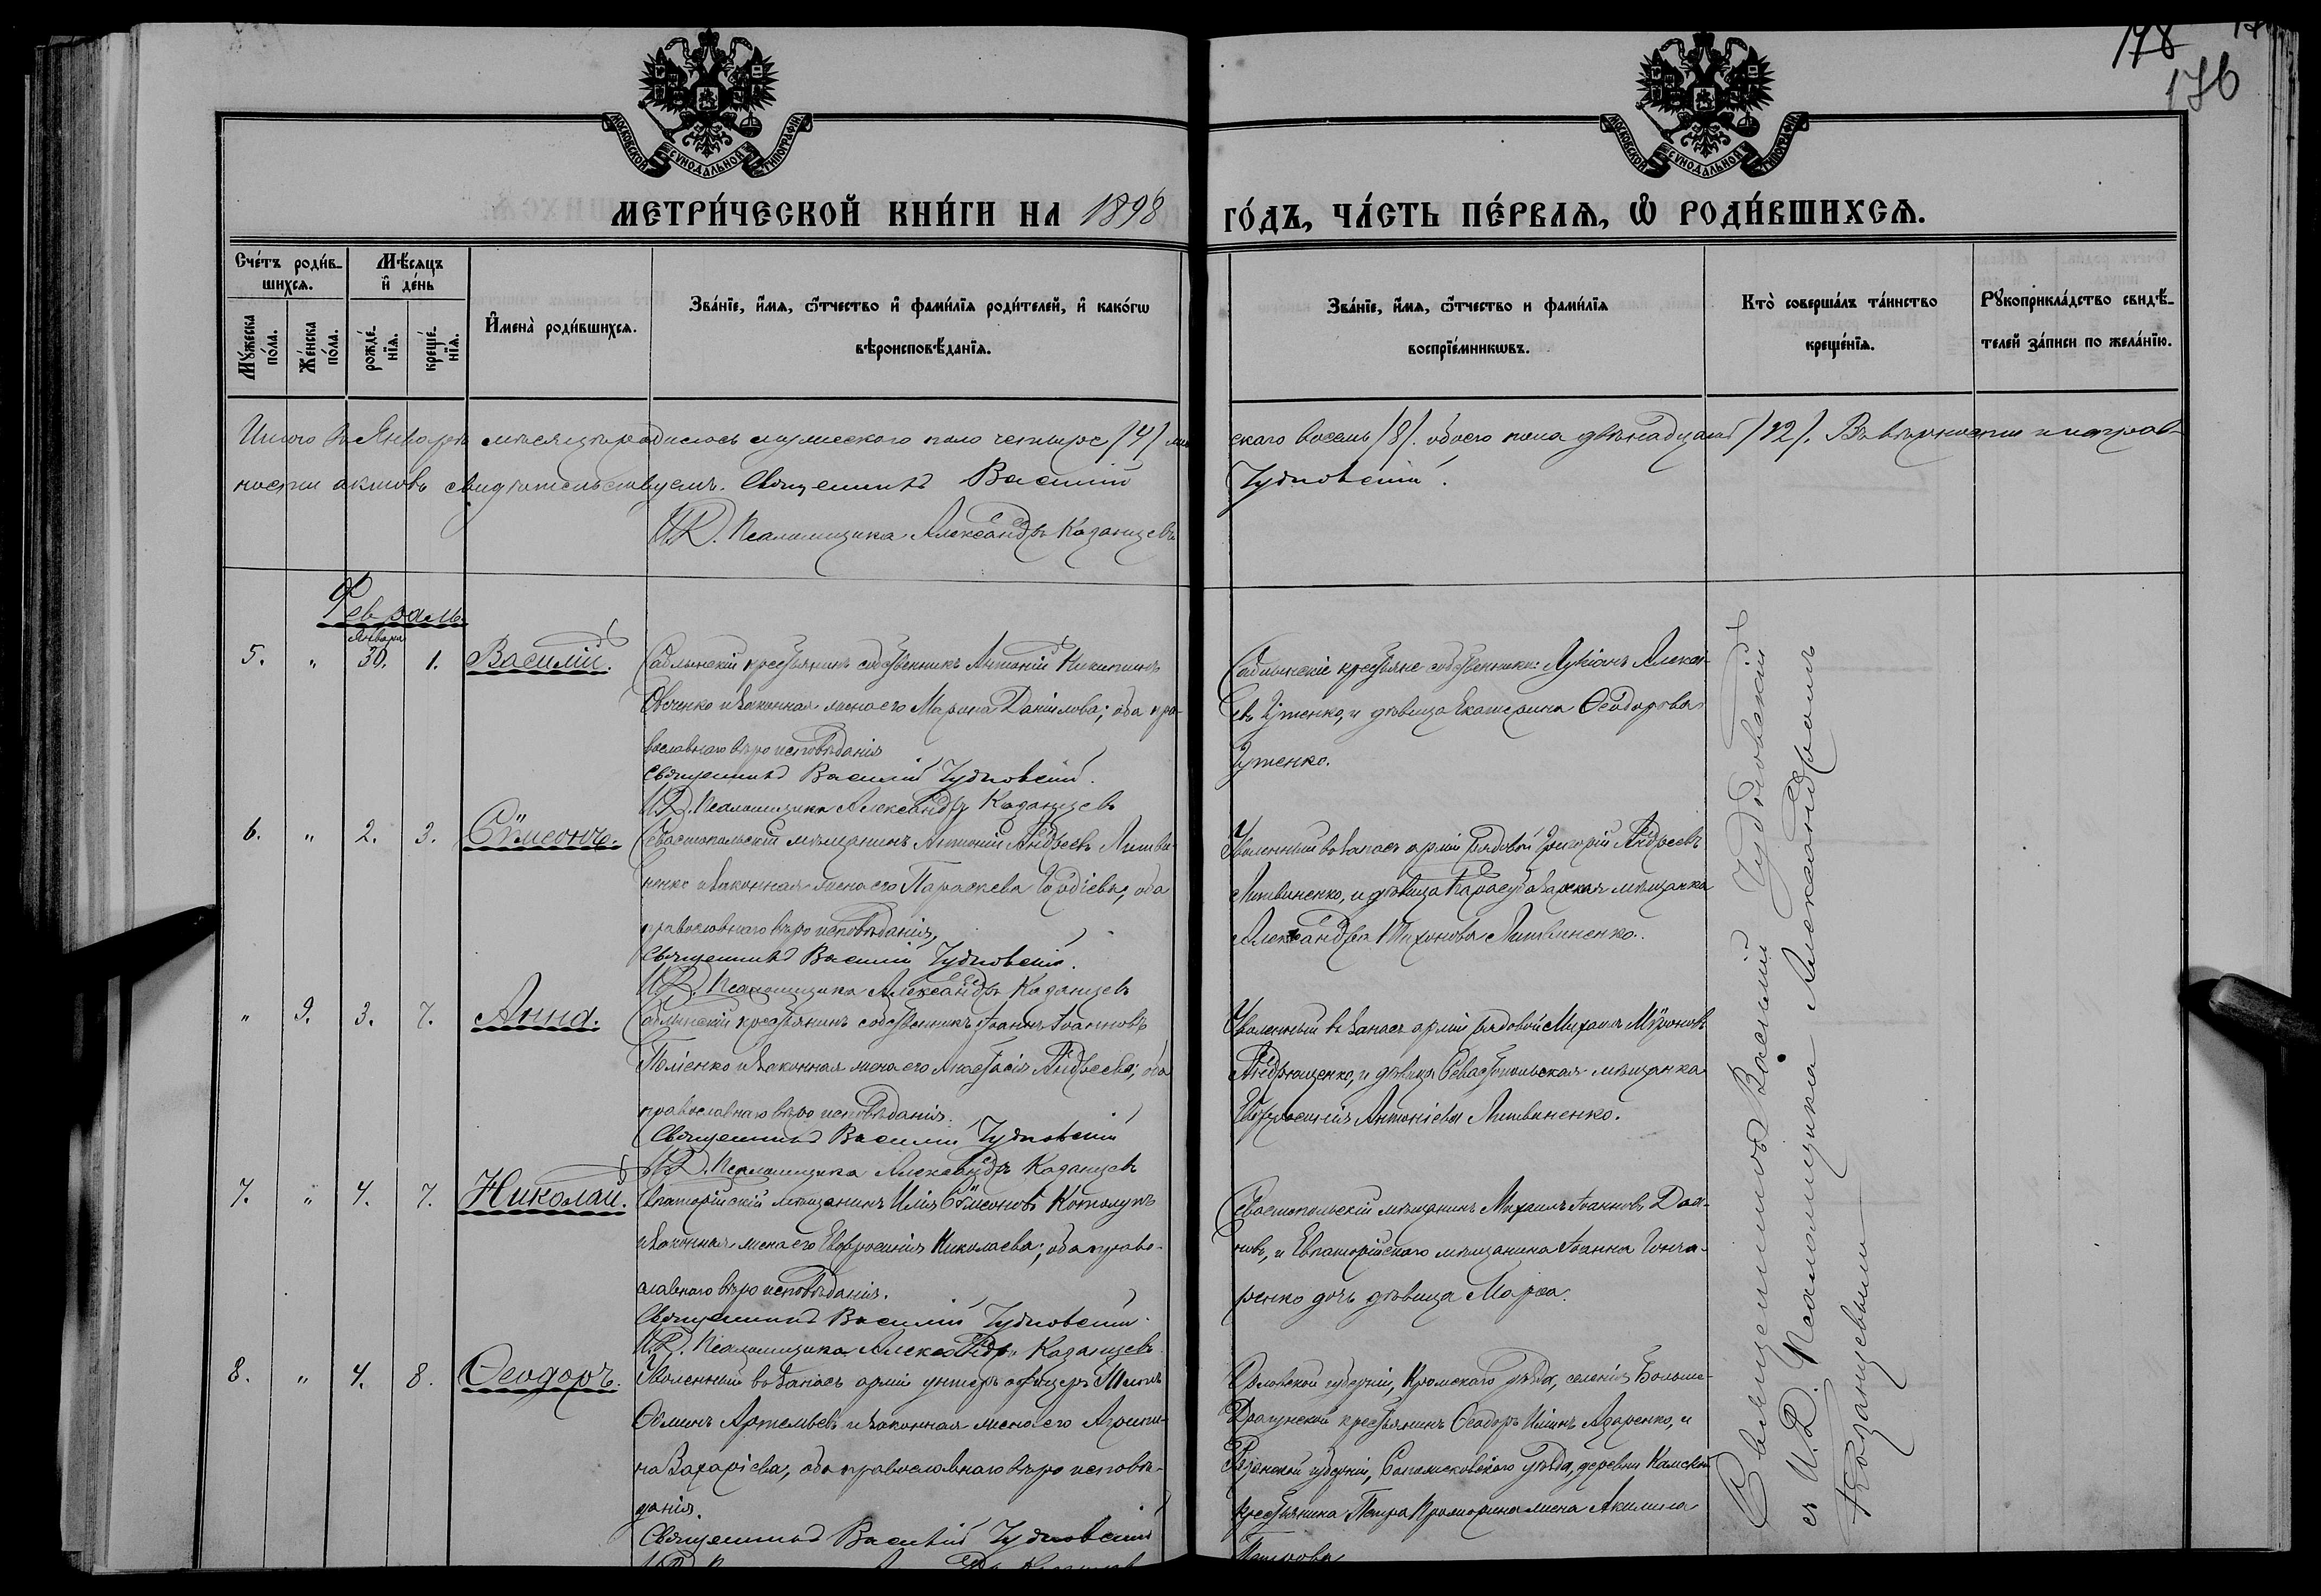 178
176
МОСКОВСКОЙ СѴНОДАЛЬНОЙ ТИПОГРАФІИ
МОСКОВСКОЙ СѴНОДАЛЬНОЙ ТИПОГРАФІИ
МЕТРИ́ЧЕСКОЙ КНИ́ГИ НА 1898
ГО́ДЪ, ЧА́СТЬ ПЕ́РВАѦ, Ѡ҆ РОДИ́ВШИХСѦ.
Сче́тъ роди́в-
шихсѧ.
Мѣ́сѧцъ
и҆ де́нь
Мꙋ́жеска
по́ла.
Же́нска
по́ла.
рожде́-
нїѧ.
креще́-
нїѧ.
И҆мена̀ роди́вшихсѧ.
Зва́нїе, и҆́мѧ, ѻ҆́тчество и҆ фами́лїѧ роди́телей, и҆ како́гѡ
вѣроисповѣ́данїѧ.
Зва́нїе, и҆́мѧ, ѻ҆́тчество и фами́лїѧ
воспрїе́мникѡвъ.
Кто̀ соверша́лъ та́инство
креще́нїѧ.
Рꙋкоприкла́дство свидѣ́-
телей за́писи по жела́нїю.
Итого въ Январѣ мѣсяцѣ родилось мужескаго пола четыре /4/ жен
скаго восемь /8/. обоего пола двѣнадцать /12/. Въ вѣрности и исправ-
ности актовъ свидѣтельствуемъ. Священникъ Василій
Чудновскій.
И.Д. Псаломщика Александръ Казанцевъ
Февраль.
Января
5. " 30. 1. Василій.
Саблынскій крестьянинъ собственникъ Антоній Никитинъ
Овченко и законная жена его Марина Даніилова; оба пра-
вославнаго вѣроисповѣданія
Священникъ Василій Чудновскій.
И.Д. Псаломщика Александръ Казанцевъ
Саблынскіе крестьяне собственники: Лукіанъ Алексѣ-
евъ Гутенко, и дѣвица Екатерина Ѳеодорова
Гутенко.
6. " 2. 3. Сѵмеонъ.
Севастопольскій мѣщанинъ Антоній Андреевъ Литви-
ненко и законная жена его Параскева Гордіева, оба
православнаго вѣроисповѣданія,
Священникъ Василій Чудновскій.
И.Д. Псаломщика Александръ Казанцевъ
Уволенный въ запасъ арміи рядовой Григорій Андреевъ
Литвиненко, и дѣвица Карасубазарская мѣщанка
Александра Тихонова Литвиненко.
" 9. 3. 7. Анна.
Саблынскій крестьянинъ собственникъ Іоаннъ Іоанновъ
и законная жена его Анастасія Андреева; оба
православнаго вѣроисповѣданія.
Священникъ Василій Чудновскій
И.Д. Псаломщика Александръ Казанцевъ
Уволенный въ запасъ арміи рядовой Михаилъ Мѵроновъ
Андрющенко, и дѣвица Севастопольская мѣщанка
Евфросинія Антоніева Литвиненко.
7. " 4. 7. Николай.
Евпаторійскій мѣщанинъ Илія Сѵмеоновъ
и законная жена его Евфросинія Николаева; оба право-
славнаго вѣроисповѣданія.
Священникъ Василій Чудновскій.
И.Д. Псаломщика Александръ Казанцевъ
Севастопольскій мѣщанинъ Михаилъ Іоанновъ
и Евпаторійскаго мѣщанина Іоанна Гонча-
ренко дочь дѣвица Марѳа.
8. " 4. 8. Ѳеодоръ.
Уволенный въ запасъ арміи унтеръ офицеръ
Артемьевъ и законная жена его Агрипи-
на Захаріева, оба православнаго вѣроисповѣ-
данія.
Священникъ Василій Чудновскій
Орловской губерніи, Кромскаго уѣзда, селенія Больше-
Драгунской крестьянинъ Ѳеодоръ Азаренко, и
Рязанской губерніи, Сапожковскаго уѣзда, деревни
крестьянина Петра жена Акилина
Петрова
Священникъ Василій Чудновскій
съ И.Д. Псаломщика Александромъ
Казанцевымъ